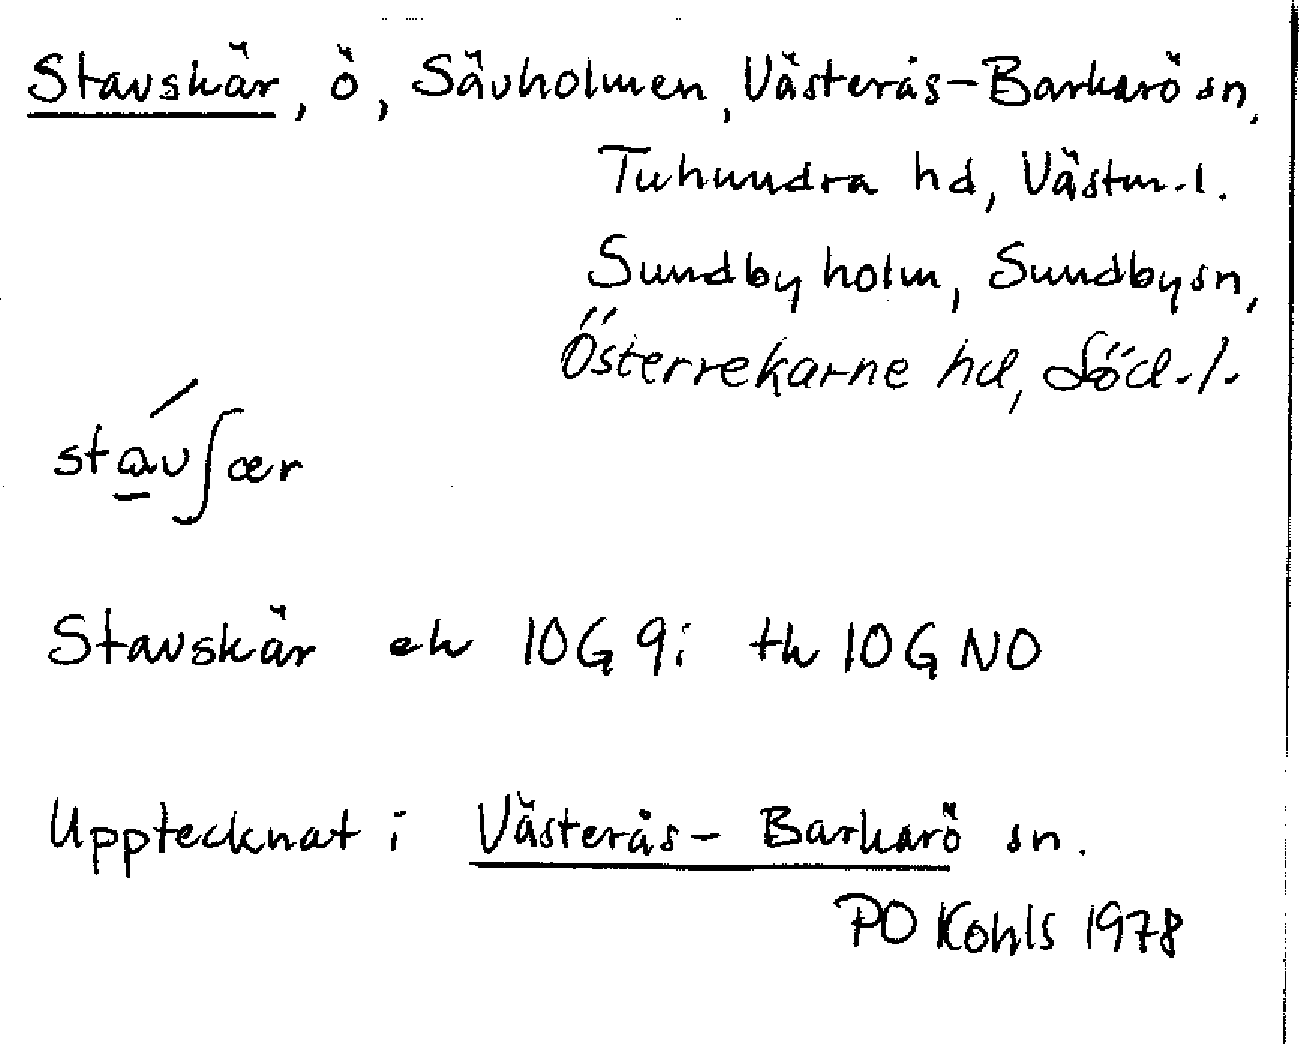 Stavskär, ö, Sävholmen, Västerås-Barkarö sn,
Tuhundra hd, Västm.l.
Sundbyholm, Sundby sn,
Österrekarne hd, Söd.l.
stav∫ær
Stavskär ek 10G 9i tk 10G NO
Upptecknat i Västerås- Barkarö sn.
PO Kohls 1978